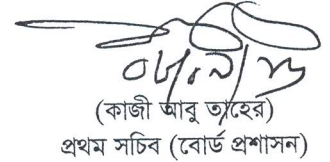 (কাজী আবু তাহের)
প্রথম সচিব (বোর্ড প্রশাসন)